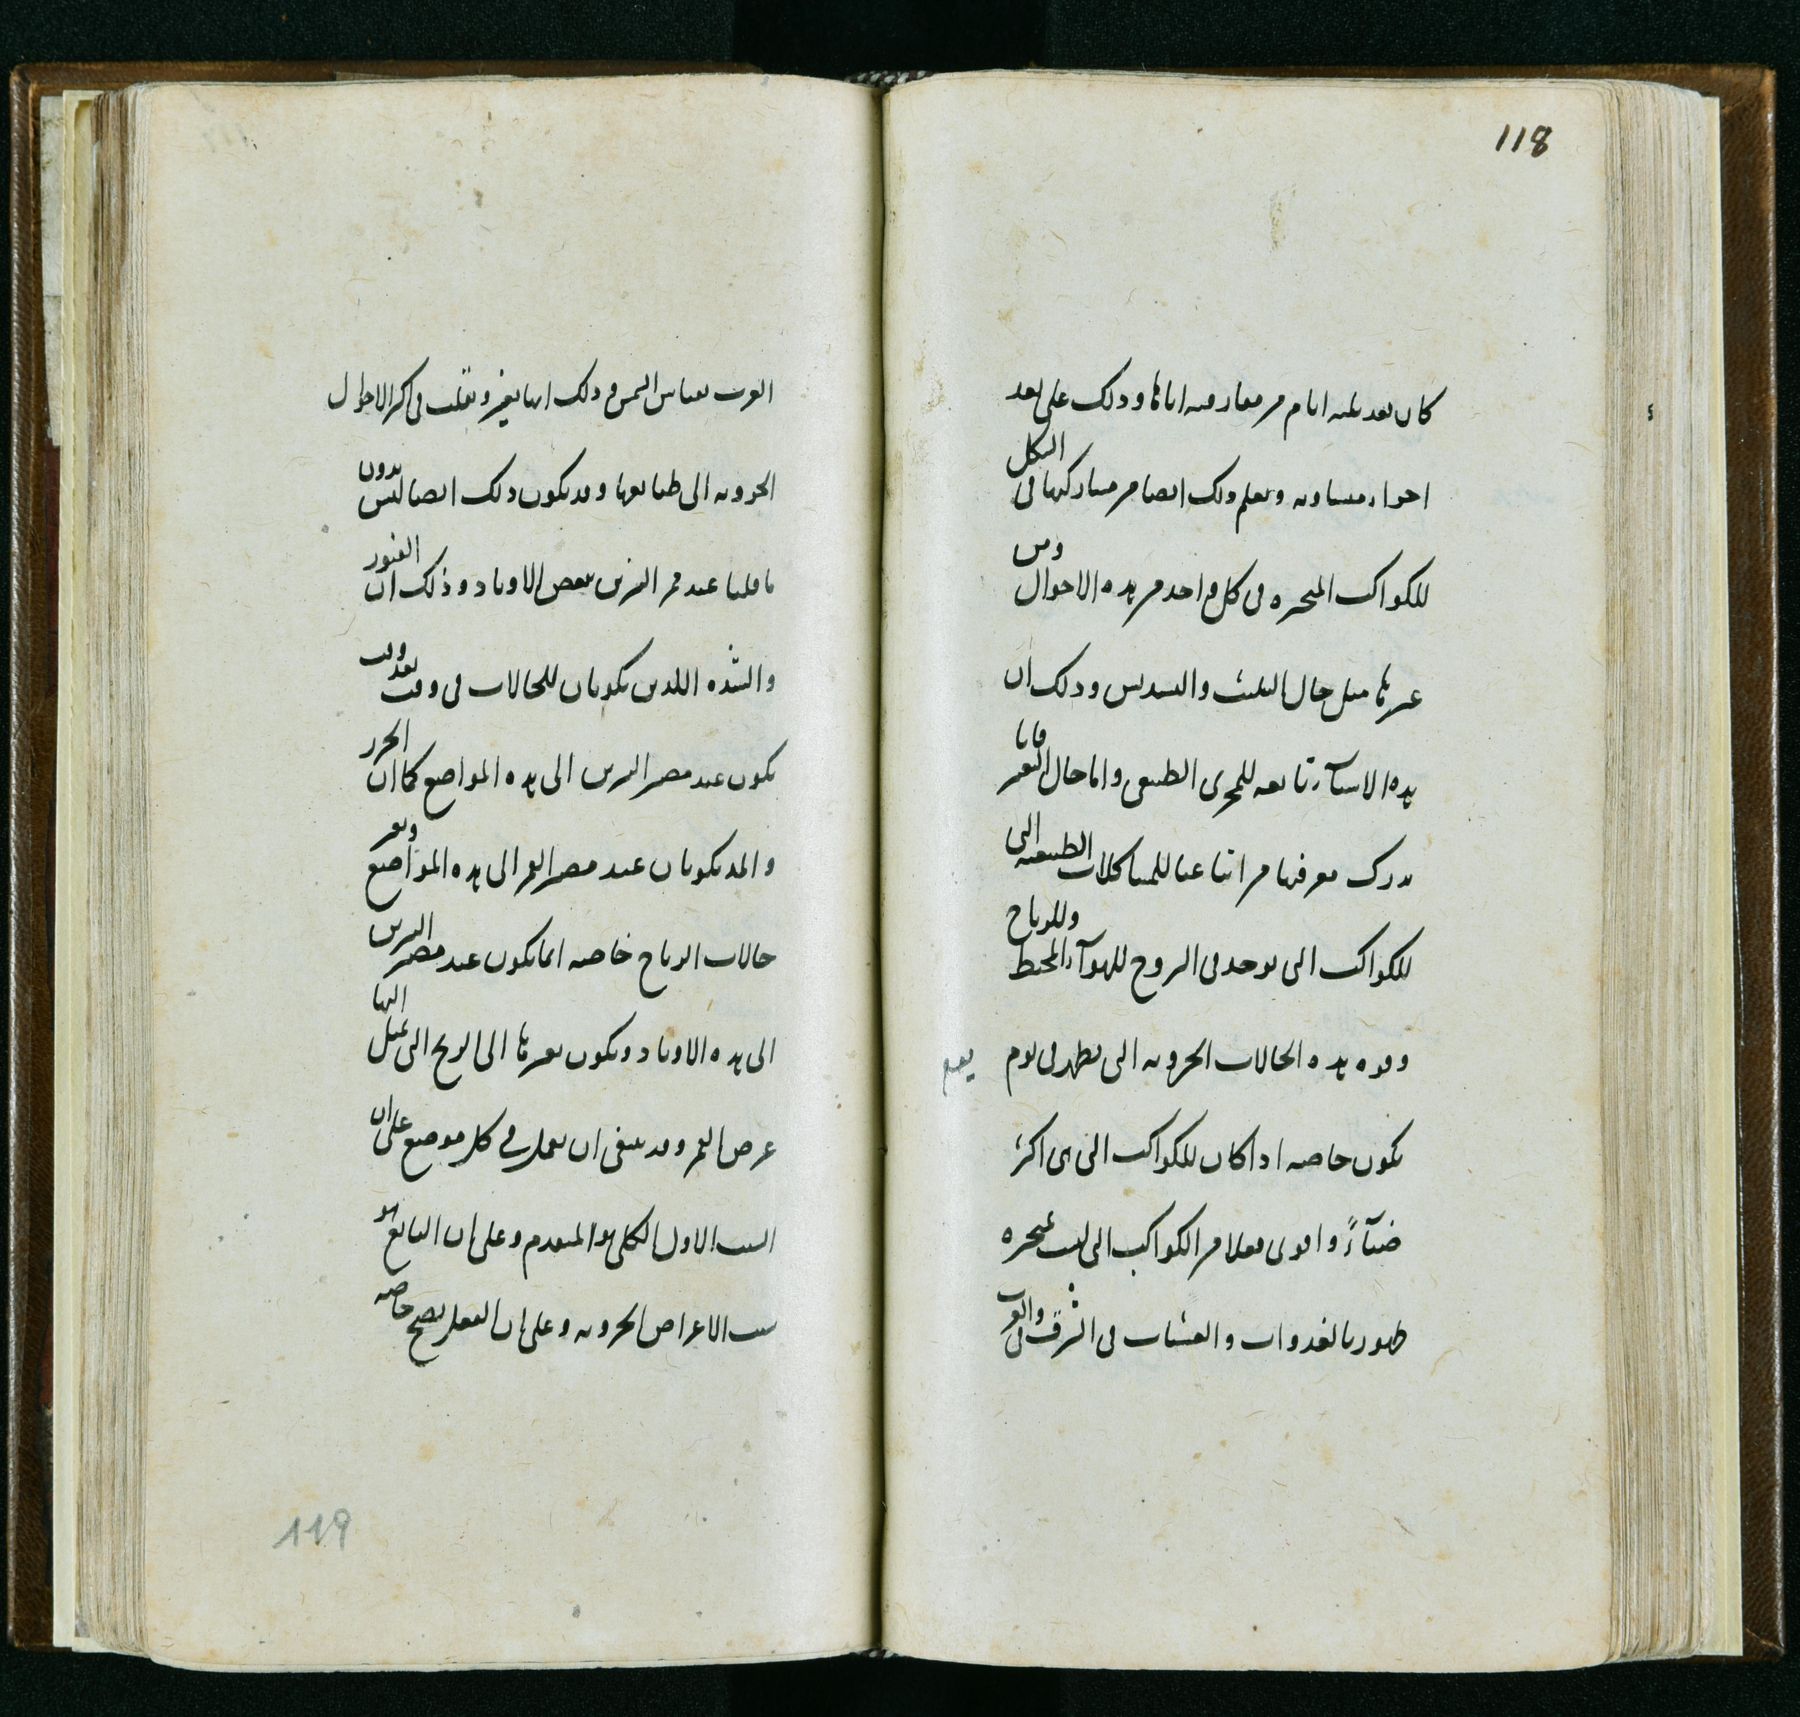 118
كان بعد ثلثة ايام من مفارقته اياها وذلك على بعد
اجزاء متساوية ويعلم ذلك ايضا من مشاركتها في الشكل
للكواكب المتحيرة في كل واحد من هذه الاحوال ومن
غيرها مثل حال التثليث والتسديس وذلك ان
هذه الاسباب تابعه للمجرى الطبيعى واما حال التغير فانا
ندرك معرفتها من اتباعنا للمشاكلات الطبيعية التى
للكواكب التى توجد فى البروج للهوآء المحيط وللرياح
وقوه هذه الحالات الجزويه التى تظهر فى يوم
يوم
يكون خاصه اذا كان للكواكب التى هى اكثر
ضيآءً واقوى فعلا من الكواكب التى ليست بمتحيره
ظهور بالغدوات والعشيات فى الشرق والغرب
الغرب بقياس الشمس وذلك انها تغير وتقلب فى اكثر الاحوال
الجزويه الى طبائعها وقد يكون ذلك ايضا ليس بدون
ما قلنا عند ممر النيرين ببعض الاوتاد وذلك ان الفتور
والشده اللذين يكونان للحالات فى وقت بعد وقت
يكون عند مصير النيرين الى هذه المواضع كما ان الجزر
والمد يكونان عند مصير القمر الى هذه المواضع وتغير
حالات الرياح خاصه انما يكون عند مصير النيرين
الى هذه الاوتاد ويكون تغيرها الى الريح التى يميل اليها
عرض القمر وقد ينبغى ان يعمل فى كل موضع على ان
السبب الاول الكلى هو المتقدم وعلى ان التابع هو
سبب الاعراض الجزويه وعلى ان الفعل يصح خاصه
119